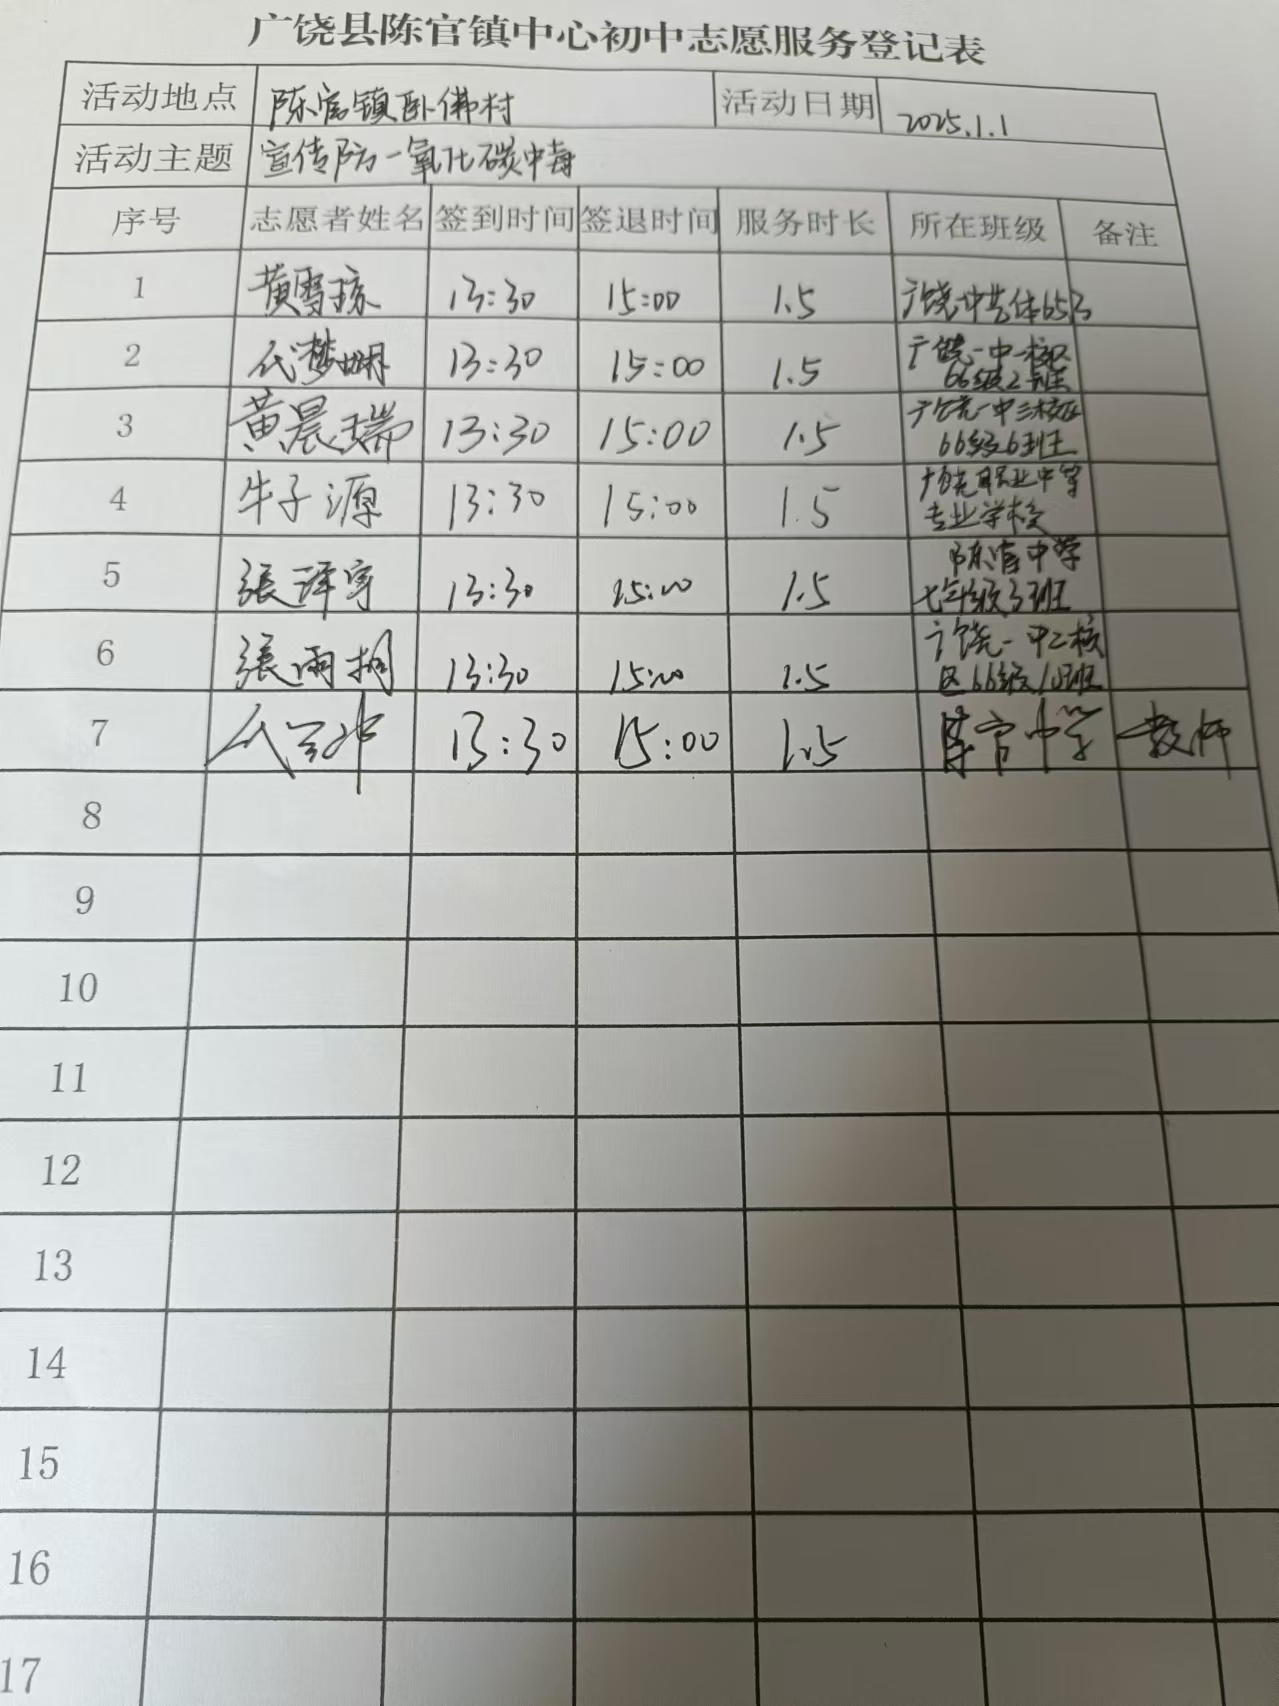 广饶县陈官镇中心初中志愿服务登记表
活动地点 陈官镇卧佛村 活动日期 2025.1.1
活动主题 宣传防一氧化碳中毒
序号 志愿者姓名 签到时间 签退时间 服务时长 所在班级 备注
1 黄雪 13:30 15:00 1.5 广饶一中艺体65级
2 代梦珊 13:30 15:00 1.5 广饶一中一校区
66级2班
3 黄晨瑞 13:30 15:00 1.5 广饶一中三校区
66级6班
4 牛子源 13:30 15:00 1.5 广饶职业中等
专业学校
5 張泽宇 13:30 15:00 1.5 陈官中学
七年级3班
6 張雨桐 13:30 15:00 1.5 广饶一中二校
区66级10班
7 13:30 15:00 1.5 陈官中学 教师
8
9
10
11
12
13
14
15
16
17